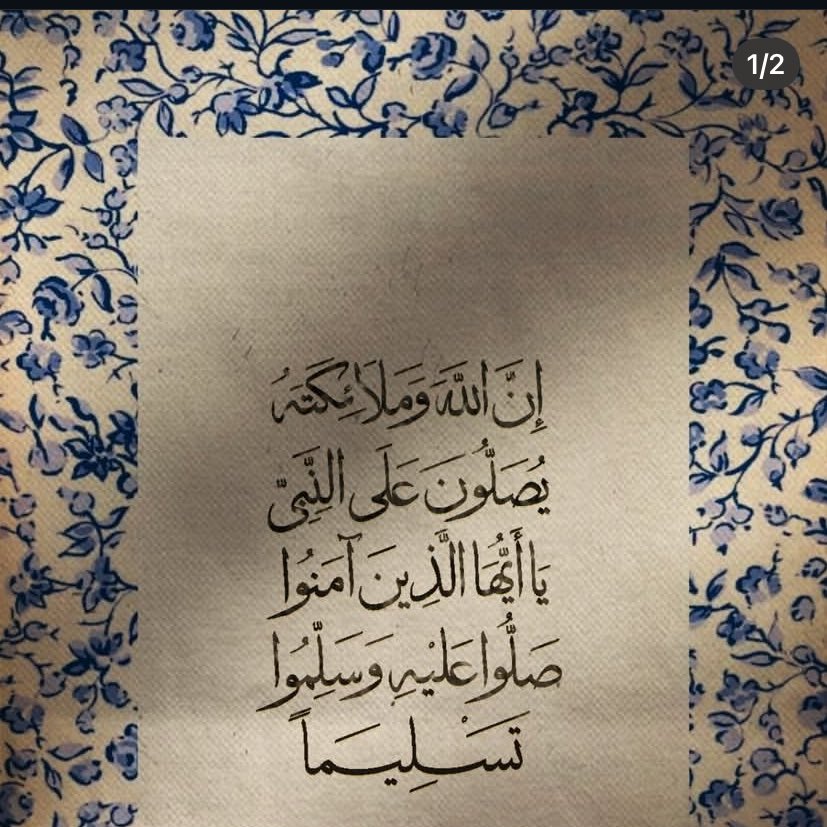 1/2
إِنَّ اللَّهَ وَمَلَائِكَتَهُ
يُصَلُّونَ عَلَى النَّبِيِّ
يَا أَيُّهَا الَّذِينَ آمَنُوا
صَلُّوا عَلَيْهِ وَسَلِّمُوا
تَسْلِيمَاً